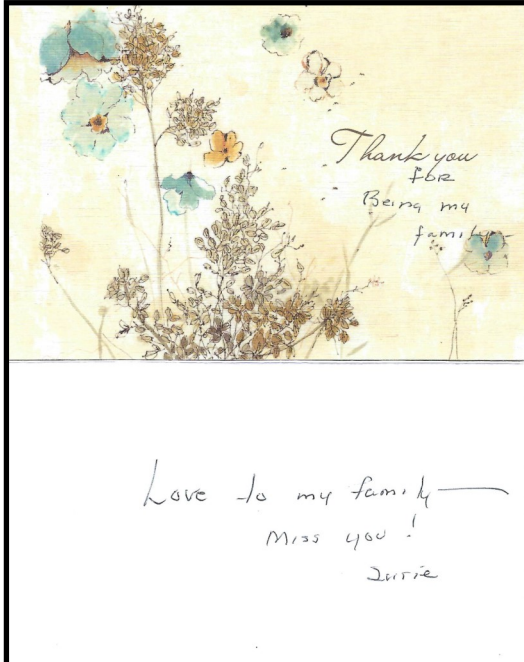 Thank you
FOR
Being my
family
Love to my family
Miss you!